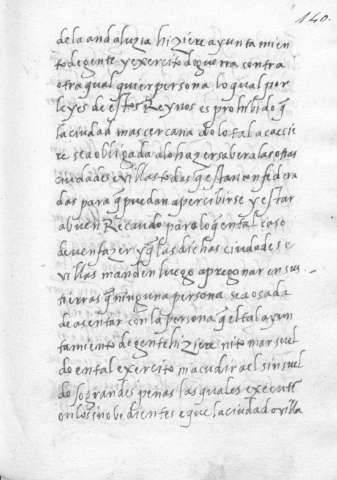 140.
de la andaluzia hiziere ayuntamien
to de gente y exercito de guerra contra
otra qual quier persona lo qual por
leyes de estos Reynos es prohibido q̃
la ciudad mas cercana do lo tal acaescie
re sea obligada a lo hazer saber a las otras
ciudades e villas todas q̃ estan confedera
das para q̃ puedan apercibirse y estar
a buen Recaudo para lo q̃ en tal caso
deven fazer y q̃ las dichas ciudades e
villas manden luego apregonar en sus
tierras q̃ ninguna persona sea osada
de asentar con la persona q̃ el tal ayun
tamiento de gente hiziere ni tomar suel
do en tal exercito ni acudir a el sin suel
do so grandes penas las quales executē
en los ynobedientes e que la ciudad o villa